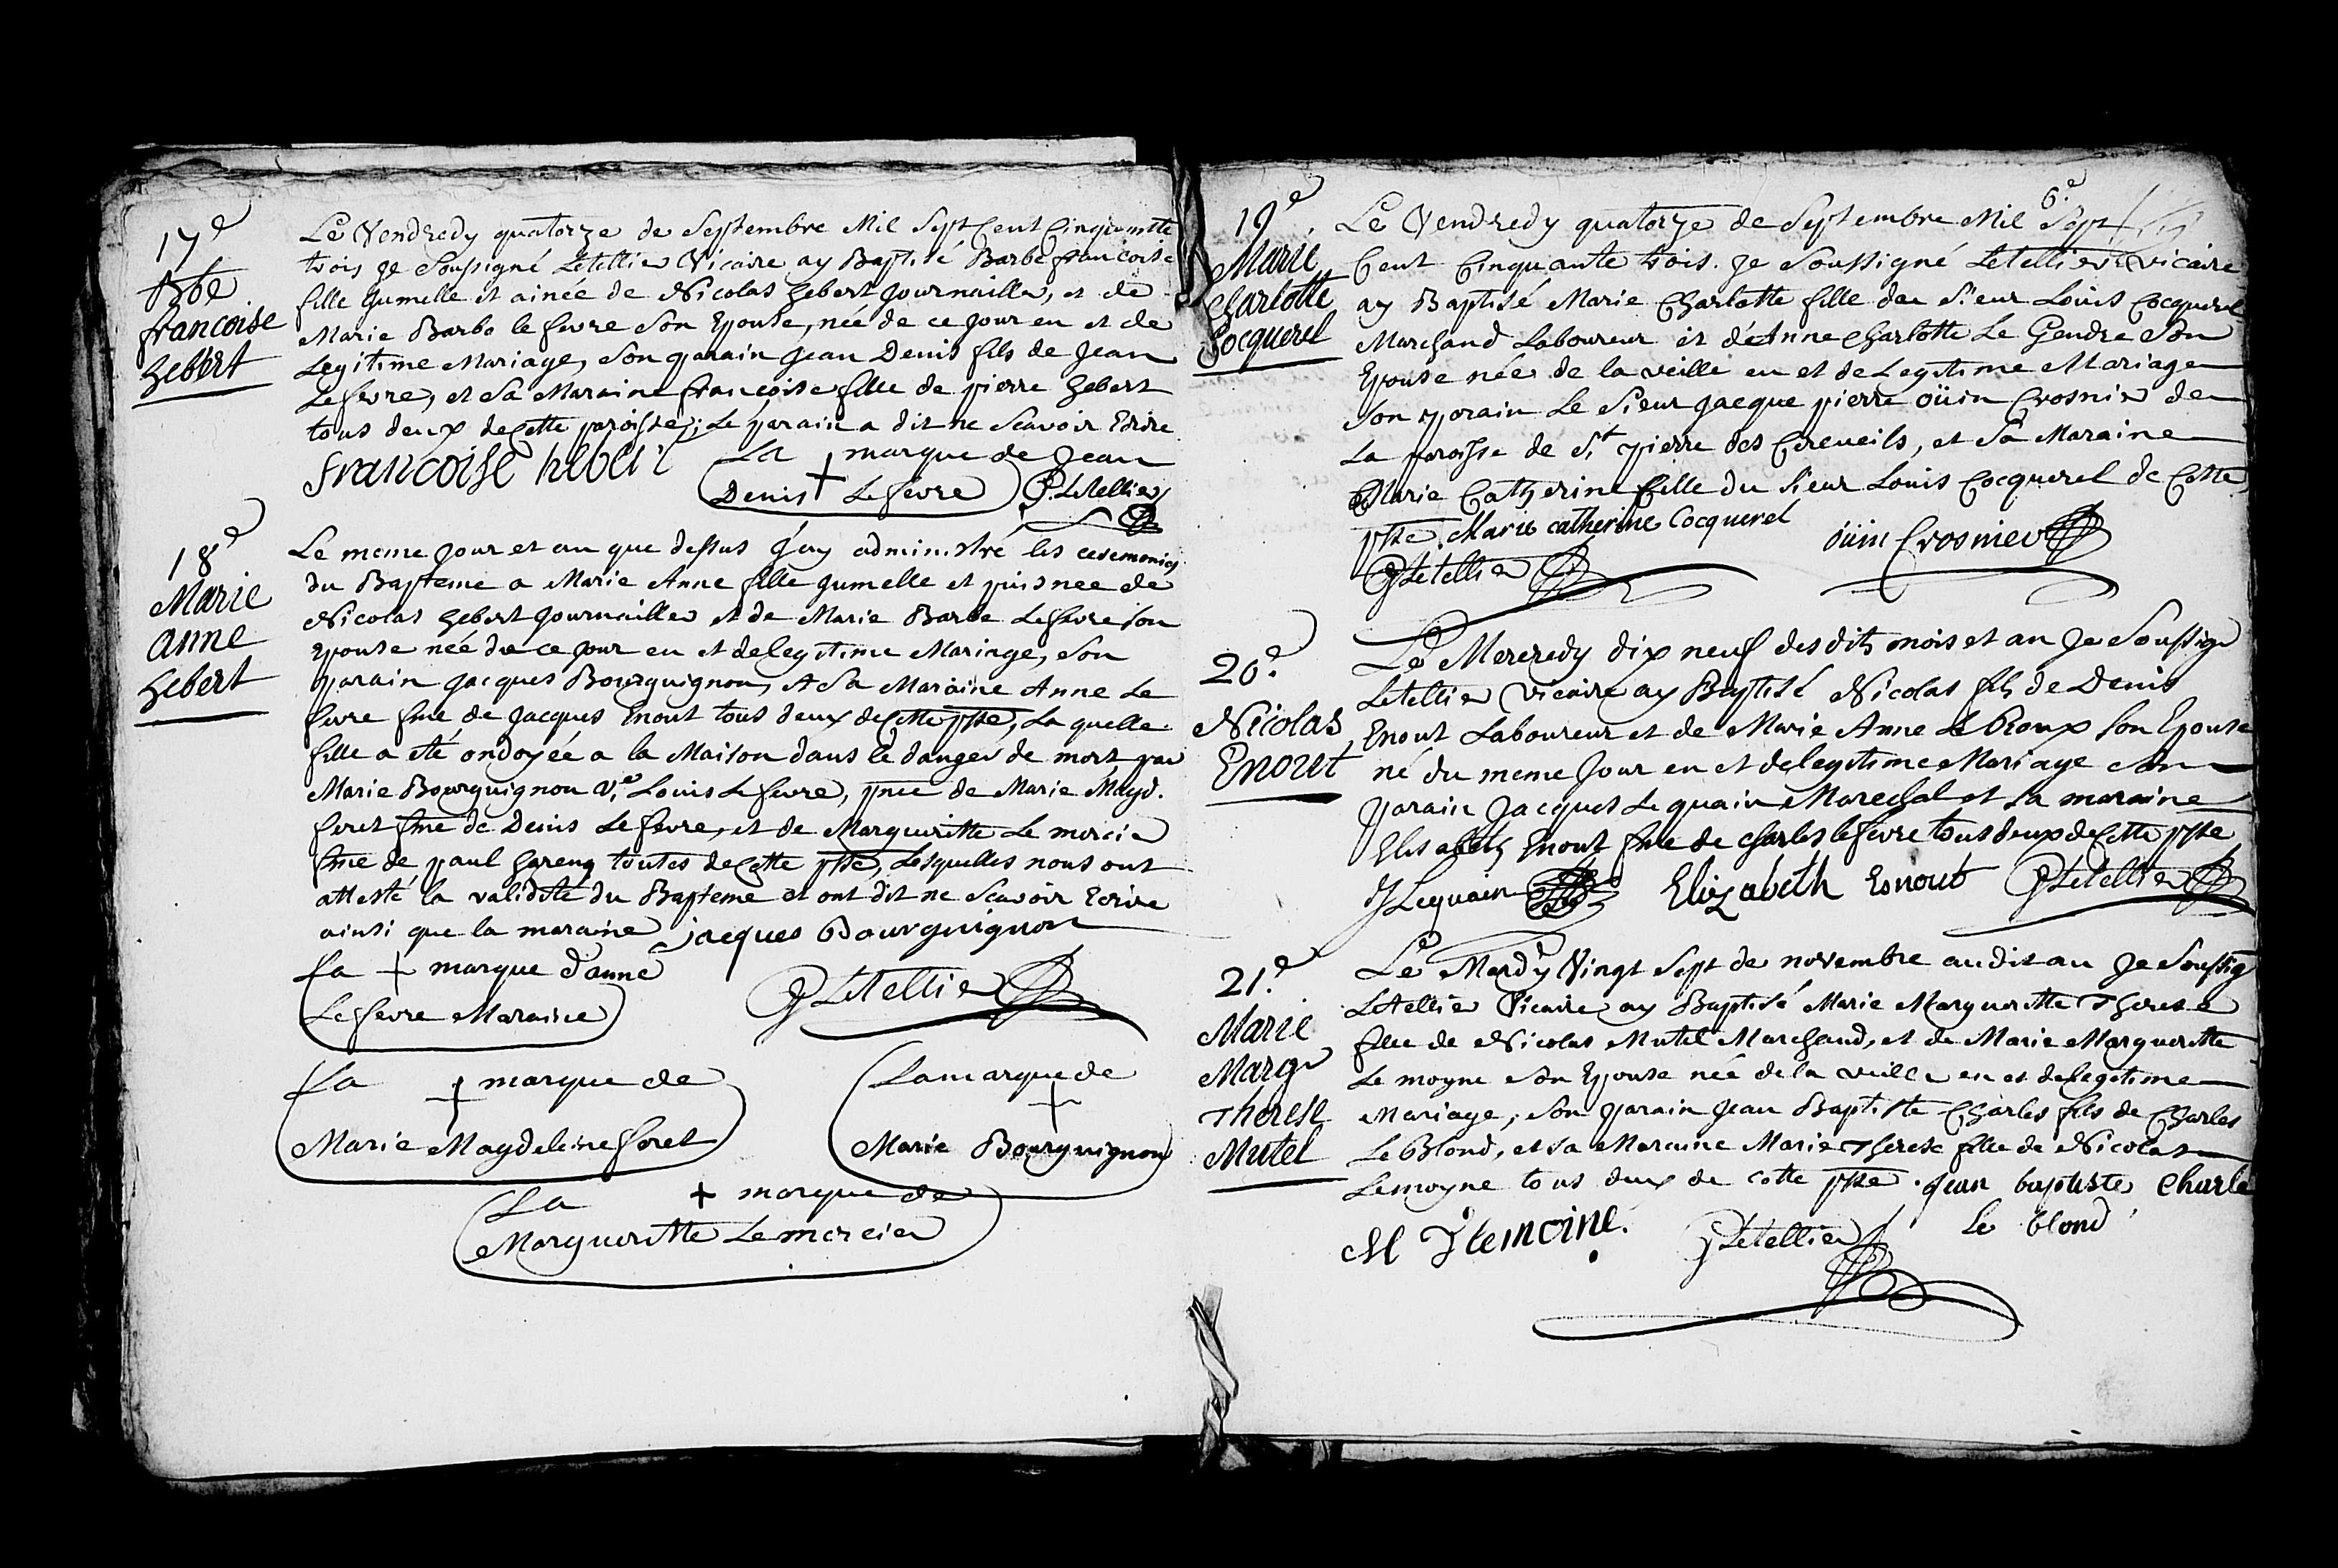 17e
Bbe
francoise
hebert
Le Vendredy quatorze de Septembre Mil Sept Cent Cinquante
trois Je Soussigné Letellier Vicaire ay Baptisé Barbe francoise
fille Jumelle et ainée de Nicolas hebert Journaillier, et de
Marie Barbe le fevre Son Epouse, née de ce Jour en et de
Legitime Mariage, Son parain Jean Denis fils de Jean
Lefevre, et Sa Maraine francoise fille de pierre hebert
tous deux de Cette paroisse; Le parain a dit ne Scavoir Ecrire
francoise hebert
La + marque de Jean
Denis Lefevre
P. Letellier
18e
Marie
anne
hebert
Le meme Jour et an que dessus J'ay administré les ceremonies
du Bapteme a Marie Anne fille Jumelle et puisnee de
Nicolas hebert Journaillier et de Marie Barbe Lefevre son
Epouse née de ce Jour en et de legitime Mariage, Son
parain Jacques Bourguignon, et Sa Maraine Anne Le
fevre fme de Jacques Enout tous deux de Cette psse, La quelle
fille a eté ondoyée a la Maison dans le danger de mort par
Marie Bourguignon Ve Louis Lefevre, pnce de Marie Magd.
foret fme de Denis Lefevre, et de Margueritte Le mercier
fme de paul hareng toutes de Cette psse, Lesquelles nous ont
attesté la validité du Bapteme et ont dit ne Scavoir Ecrire
ainsi que la maraine jacques Bourguignon
La + marque d'anne
Lefevre Maraine
P Letellier
La + marque de
Marie Magdeleine foret
La marque de
+
Marie Bourguignon
La + marque de
Margueritte Lemercier
6e
19e
Marie
Charlotte
Cocquerel
Le Vendredy quatorze de Septembre Mil Sept
Cent Cinquante trois. Je Soussigné Letellier vicaire
ay Baptisé Marie Charlotte fille du Sieur Louis Cocquerel
Marchand Laboureur et de Anne Charlotte Le Gendre Son
Epouse née de la veille en et de Legitime Mariage
Son parain Le Sieur Jacque pierre oüin Crosnier de
La paroisse de St pierre des Cercueils, et Sa Maraine
Marie Catherine fille du Sieur Louis Cocquerel de Cette
psse. Marie catherine Cocquerel
oüin Crosnier
P Letellier
20e.
Nicolas
Enout
Le Mercredy dix neuf des dits mois et an Je Soussigé
Letellier vicaire ay Baptisé Nicolas fils de Denis
Enout Laboureur et de Marie Anne Le Roux Son Epouse
né du meme Jour en et de legitime Mariage Son
parain Jacques Lequain Marechal et Sa maraine
Elisabeth Enout fme de charles lefevre tous deux de Cette psse
J Lequain
Elizabeth Esnout
P Letellier
21.e
Marie
Margte
Therese
Mutel
Le Mardy Vingt Sept de novembre au dit an Je Soussigé
Letellier Vicaire ay Baptisé Marie Margueritte Therese
fille de Nicolas Mutel Marchand, et de Marie Margueritte
Le moyne Son Epouse née de la veille en et de legitime
Mariage, Son parain Jean Baptiste Charles fils de Charles
Le Blond, et Sa Maraine Marie Therese fille de Nicolas
Lemoyne tous deux de cette psse. jean baptiste Charle
le blond
M T lemoine.
P Letellier